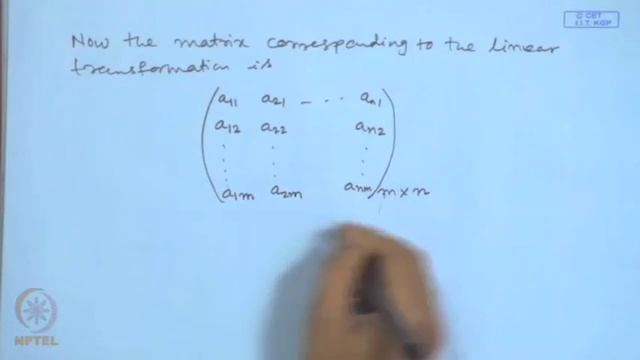 © CET
I.I.T. KGP
Now the matrix corresponding to the linear
transformation is
a11 a21 - ... an1
a12 a22 an2
⋮ ⋮ ⋮
a1m a2m anm m×n
NPTEL